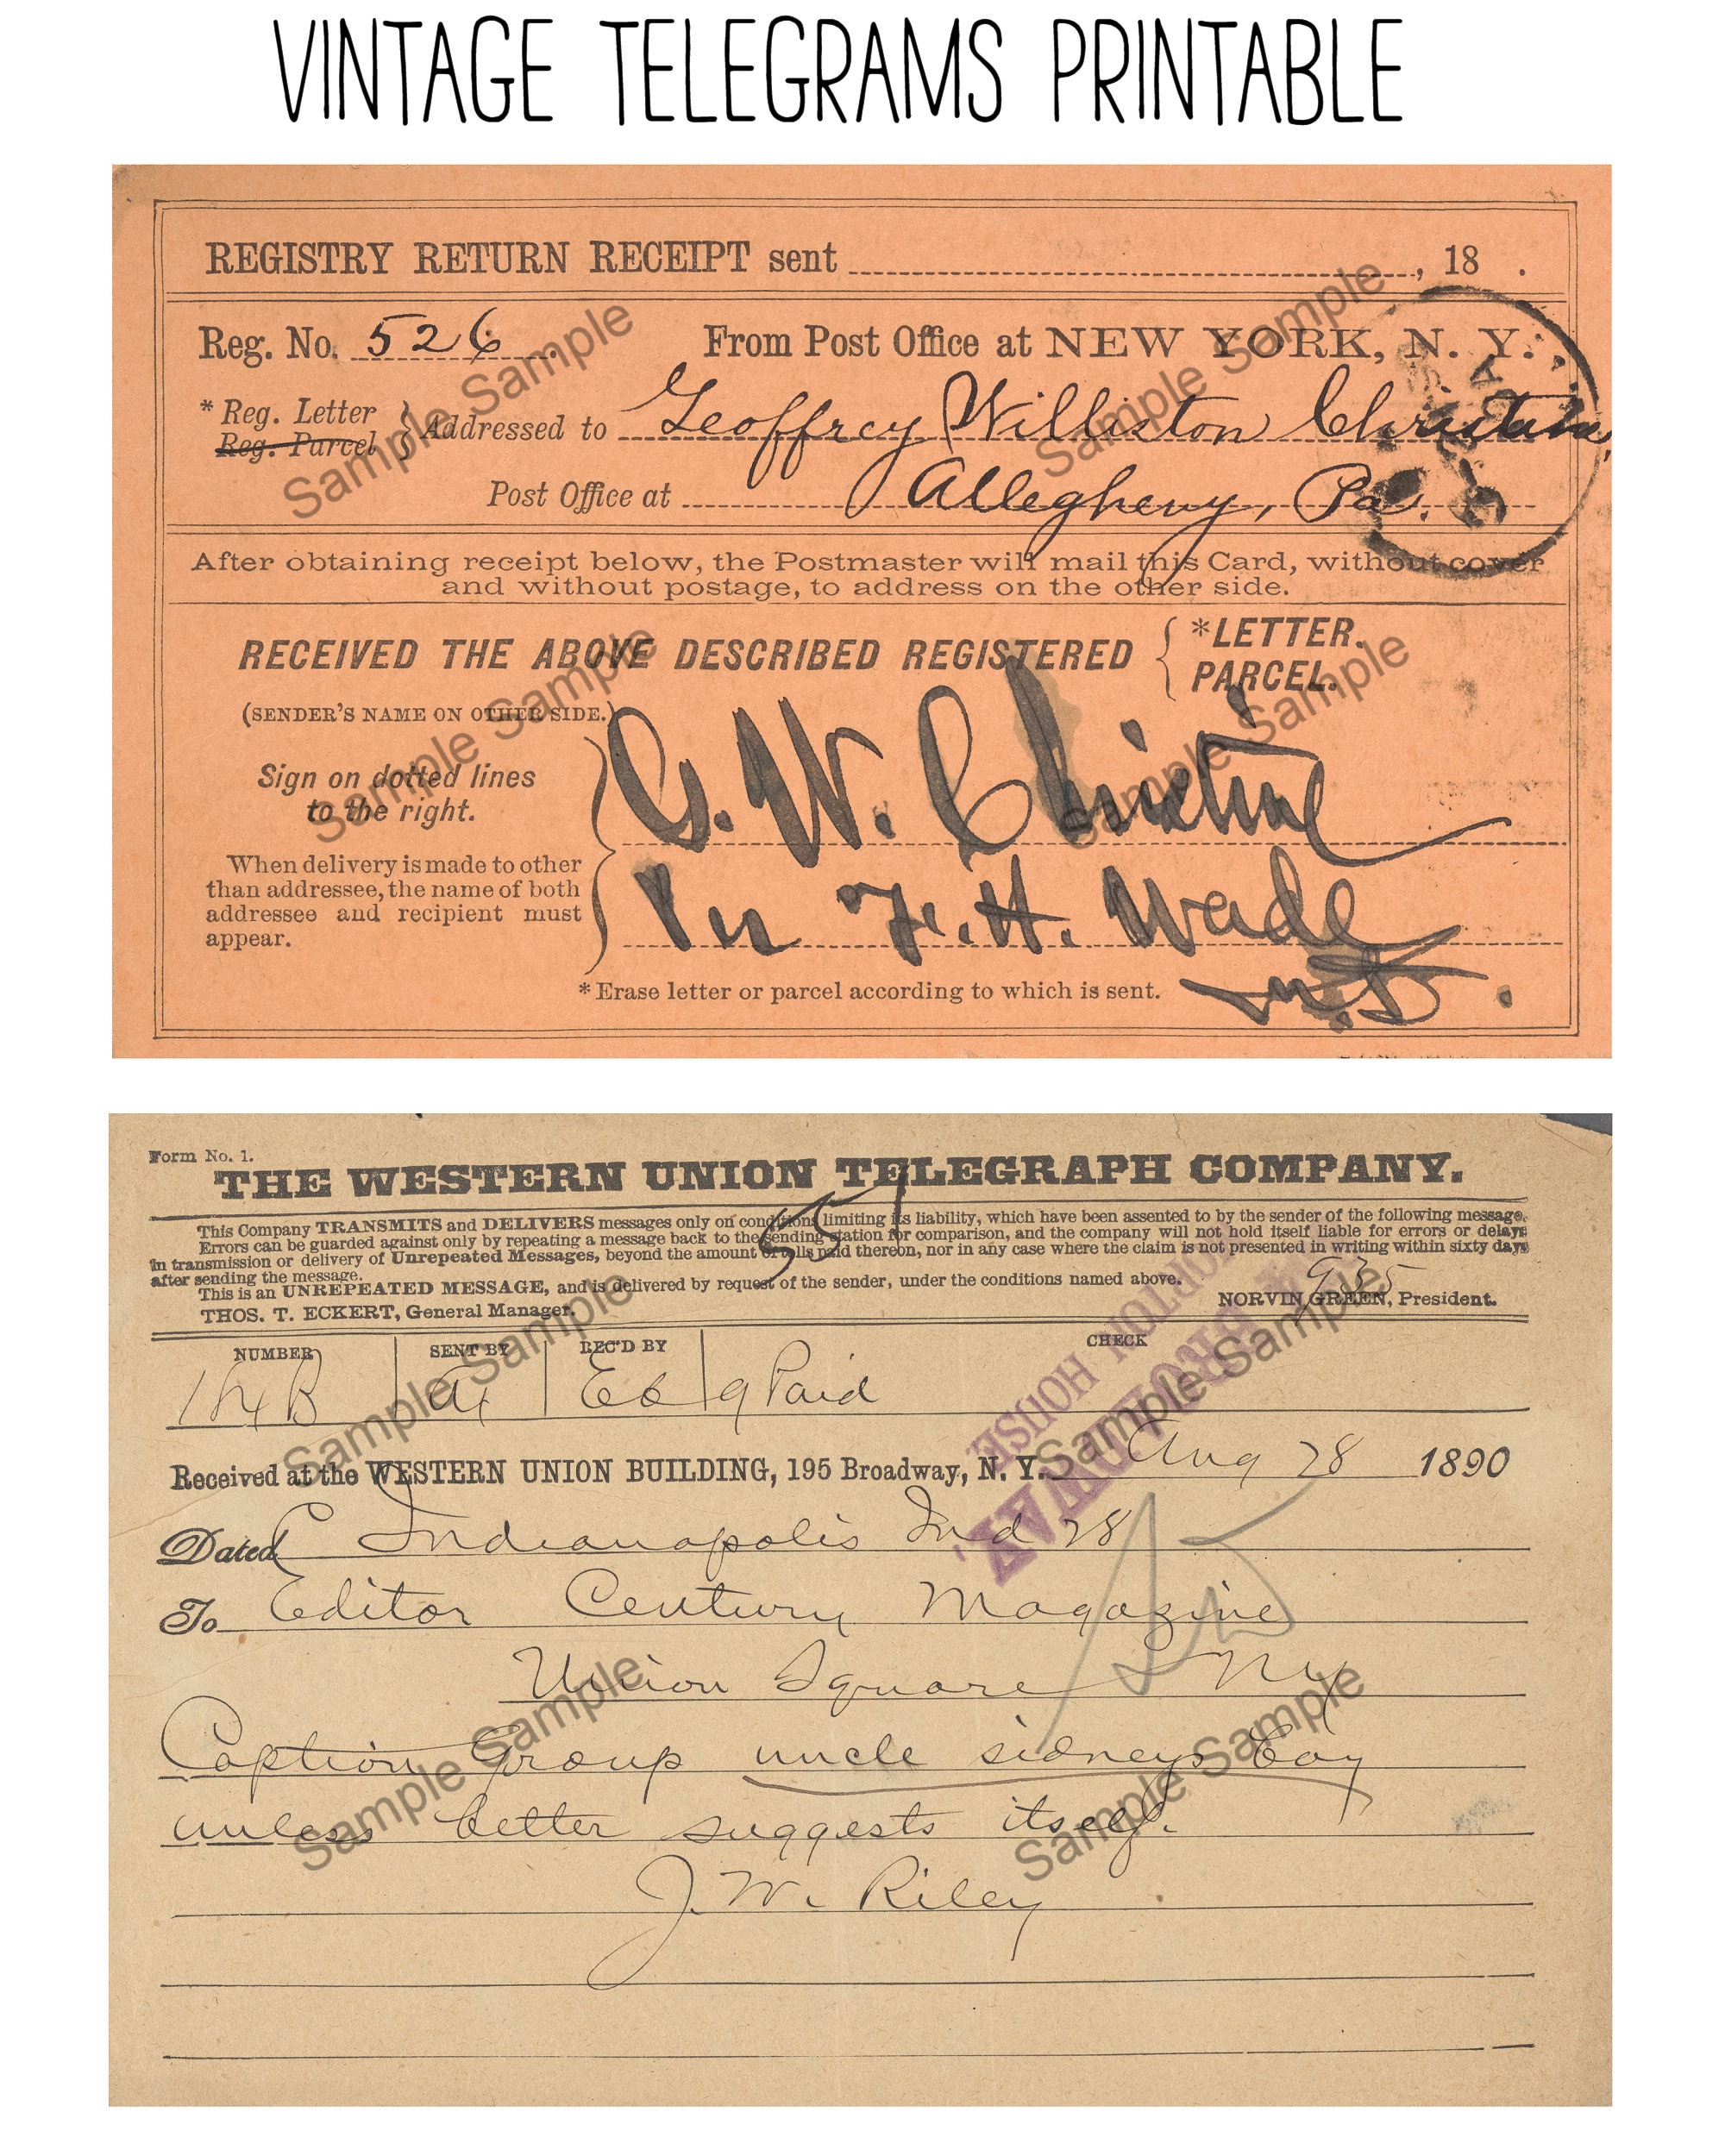 VINTAGE TELEGRAMS PRINTABLE
REGISTRY RETURN RECEIPT sent , 18 .
Reg. No. 526 From Post Office at NEW YORK, N. Y.
* Reg. Letter
Reg. Parcel } Addressed to Geoffrey Williston Christine
Post Office at Allegheny, Pa.
After obtaining receipt below, the Postmaster will mail this Card, without cover
and without postage, to address on the other side.
RECEIVED THE ABOVE DESCRIBED REGISTERED { *LETTER.
PARCEL.
(SENDER'S NAME ON OTHER SIDE.)
Sign on dotted lines
to the right.
G. W. Christine
When delivery is made to other
than addressee, the name of both
addressee and recipient must
appear.
Per F. H. Wade
* Erase letter or parcel according to which is sent.
Sample Sample
Sample Sample
Sample Sample
Sample Sample
Form No. 1.
THE WESTERN UNION TELEGRAPH COMPANY.
This Company TRANSMITS and DELIVERS messages only on conditions limiting its liability, which have been assented to by the sender of the following message.
Errors can be guarded against only by repeating a message back to the sending station for comparison, and the company will not hold itself liable for errors or delays
in transmission or delivery of Unrepeated Messages, beyond the amount of tolls paid thereon, nor in any case where the claim is not presented in writing within sixty days
after sending the message.
This is an UNREPEATED MESSAGE, and is delivered by request of the sender, under the conditions named above.
935
THOS. T. ECKERT, General Manager. NORVIN GREEN, President.
NUMBER SENT BY REC'D BY CHECK
9 Paid
MORTON HOUSE
BROADWAY,
Received at the WESTERN UNION BUILDING, 195 Broadway, N. Y. Aug 28 1890
Dated Indianapolis Ind 28
To Editor Century Magazine
Union Square NY
Caption Group uncle sidneys Boy
unless better suggests itself.
J. W. Riley
Sample Sample
Sample Sample
Sample Sample
Sample Sample